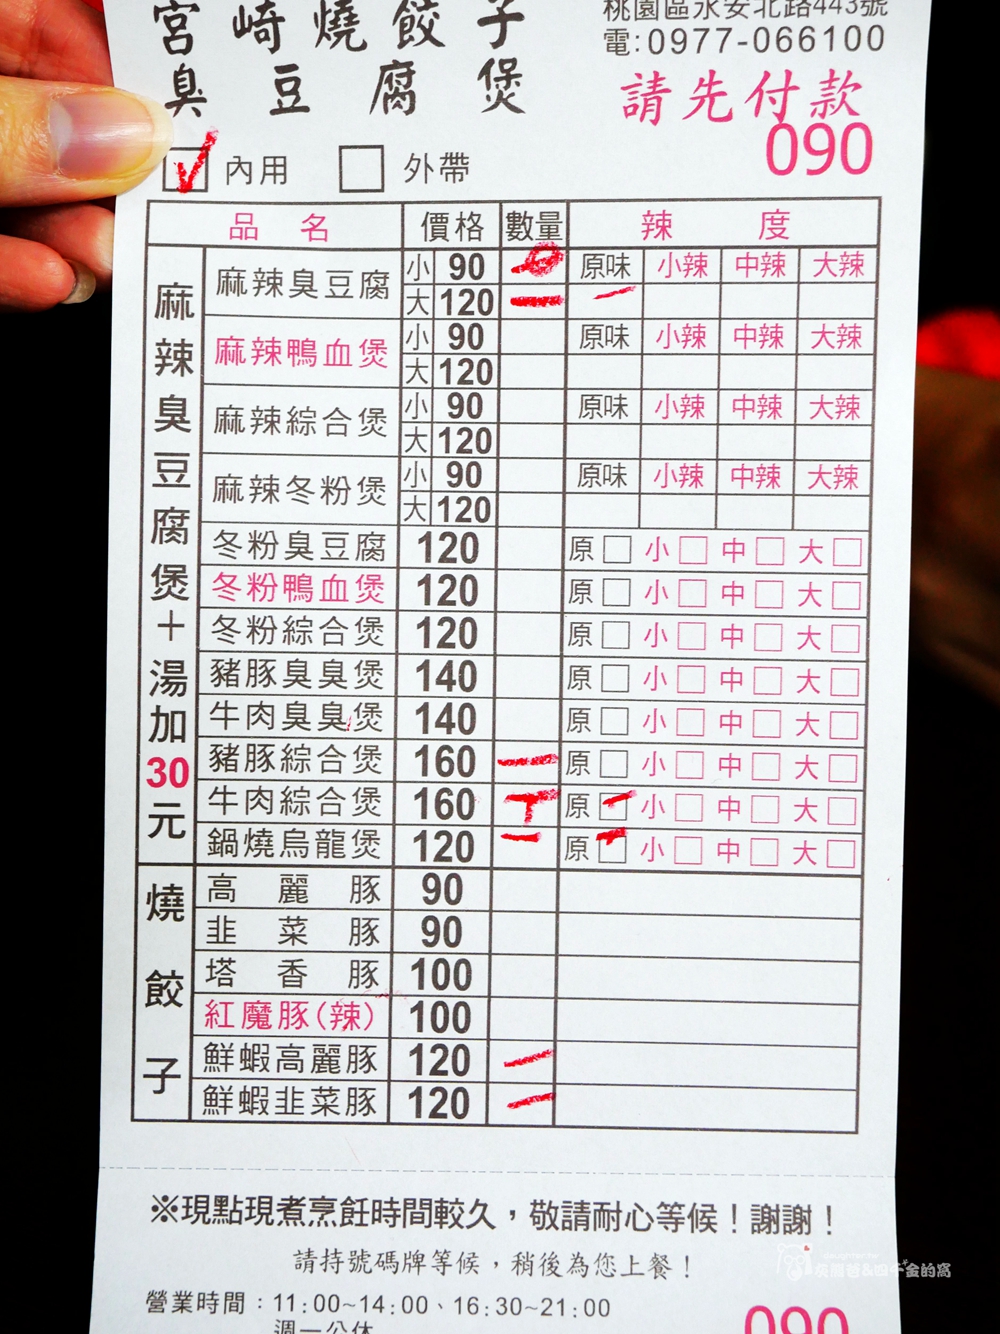 宮崎燒餃子
臭豆腐煲
桃園區永安北路443號
電:0977-066100
請先付款
090
內用 外帶
品名 價格 數量 辣度
麻辣臭豆腐煲+湯加30元
麻辣臭豆腐 小 90 原味 小辣 中辣 大辣
大 120
麻辣鴨血煲 小 90 原味 小辣 中辣 大辣
大 120
麻辣綜合煲 小 90 原味 小辣 中辣 大辣
大 120
麻辣冬粉煲 小 90 原味 小辣 中辣 大辣
大 120
冬粉臭豆腐 120 原 小 中 大
冬粉鴨血煲 120 原 小 中 大
冬粉綜合煲 120 原 小 中 大
豬豚臭臭煲 140 原 小 中 大
牛肉臭臭煲 140 原 小 中 大
豬豚綜合煲 160 一 原 小 中 大
牛肉綜合煲 160 原 小 中 大
鍋燒烏龍煲 120 一 原 小 中 大
燒餃子
高麗豚 90
韭菜豚 90
塔香豚 100
紅魔豚(辣) 100
鮮蝦高麗豚 120 一
鮮蝦韭菜豚 120 一
※現點現煮烹飪時間較久，敬請耐心等候！謝謝！
請持號碼牌等候，稍後為您上餐！
營業時間：11:00~14:00、16:30~21:00
週一公休
090